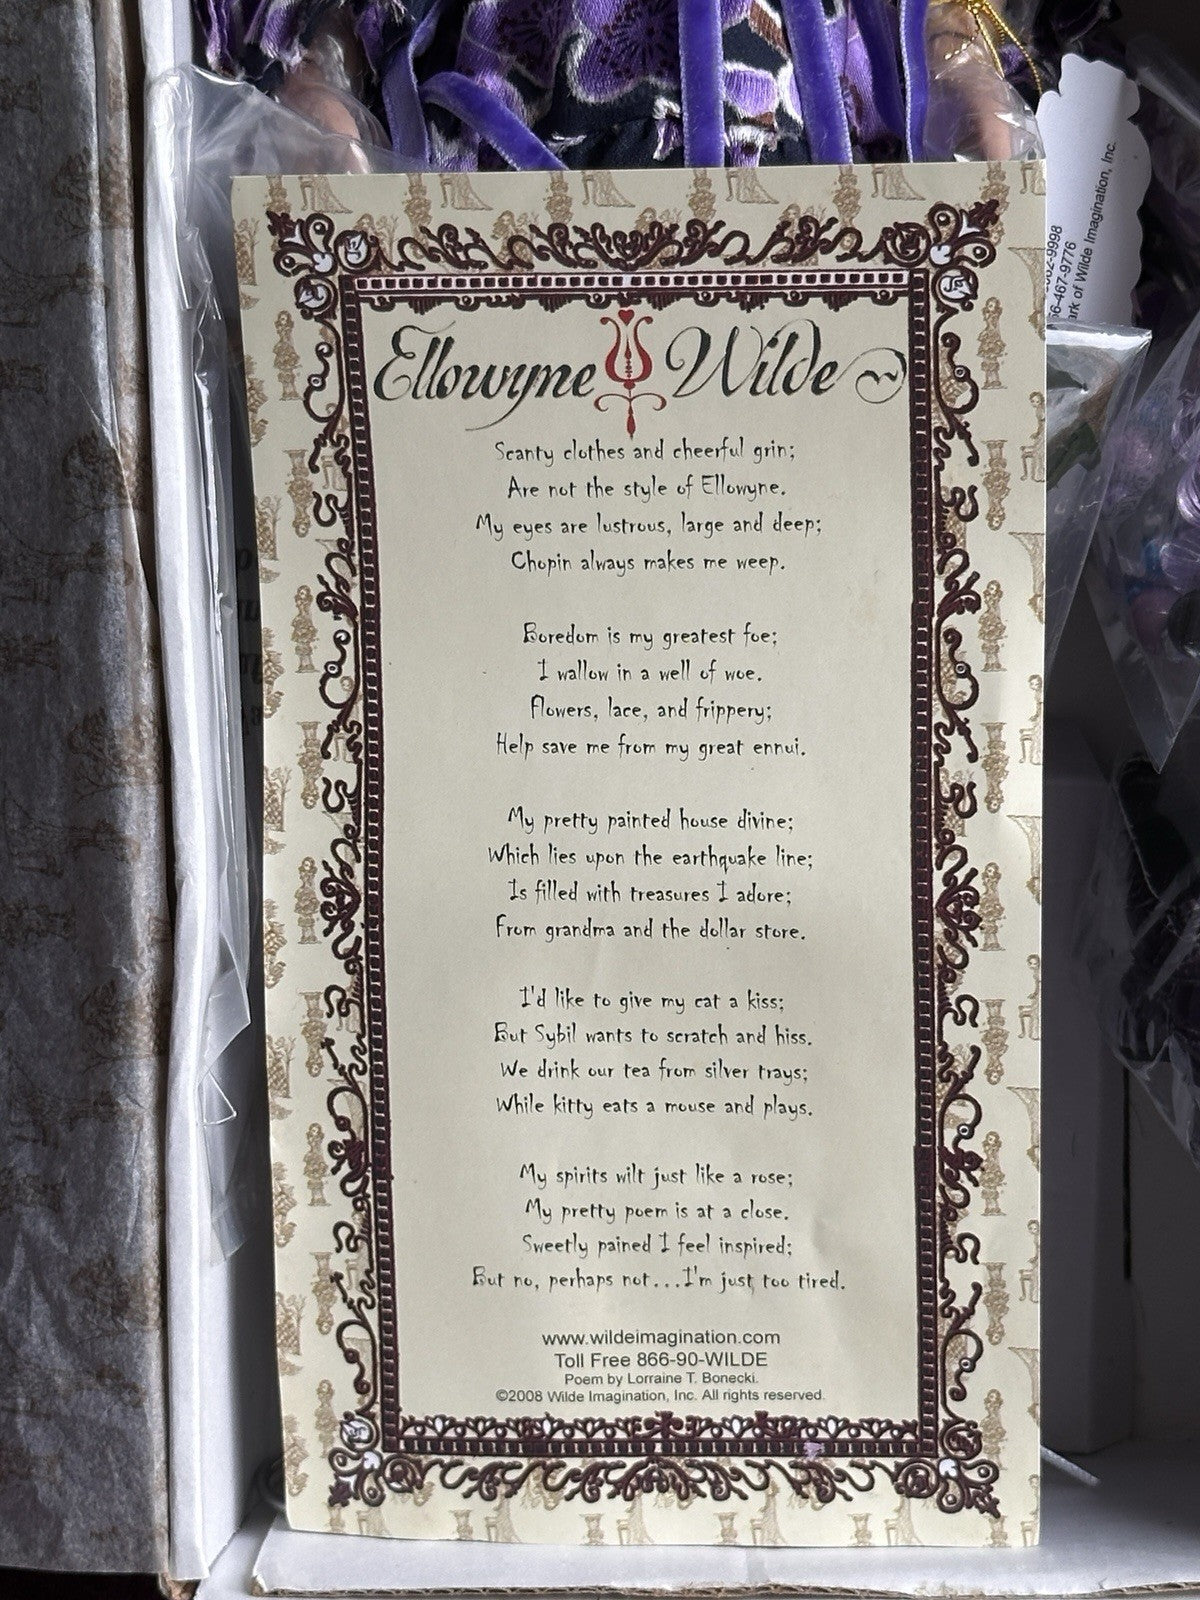 Ellowyne Wilde
Scanty clothes and cheerful grin;
Are not the style of Ellowyne.
My eyes are lustrous, large and deep;
Chopin always makes me weep.
Boredom is my greatest foe;
I wallow in a well of woe.
Flowers, lace, and frippery;
Help save me from my great ennui.
My pretty painted house divine;
Which lies upon the earthquake line;
Is filled with treasures I adore;
From grandma and the dollar store.
I'd like to give my cat a kiss;
But Sybil wants to scratch and hiss.
We drink our tea from silver trays;
While kitty eats a mouse and plays.
My spirits wilt just like a rose;
My pretty poem is at a close.
Sweetly pained I feel inspired;
But no, perhaps not...I'm just too tired.
www.wildeimagination.com
Toll Free 866-90-WILDE
Poem by Lorraine T. Bonecki.
©2008 Wilde Imagination, Inc. All rights reserved.
-9998
-467-9776
of Wilde Imagination, Inc.